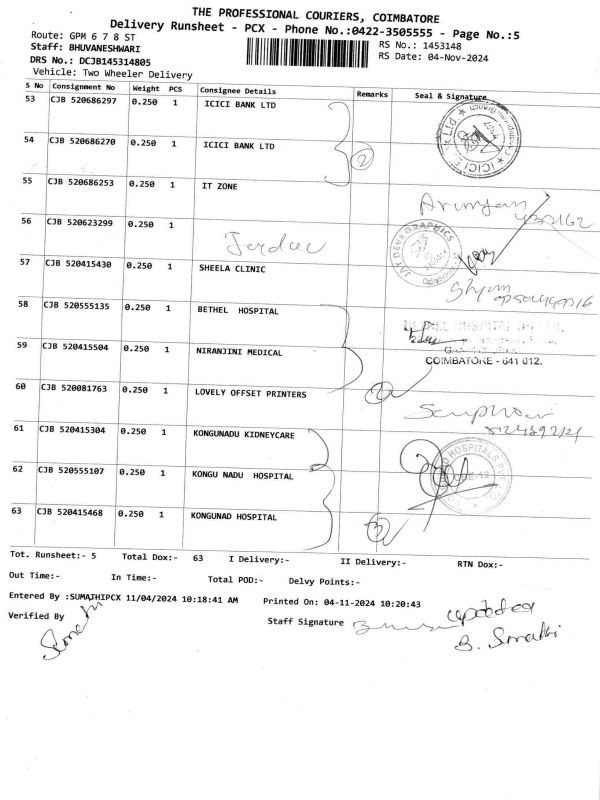 THE PROFESSIONAL COURIERS, COIMBATORE
Delivery Runsheet - PCX - Phone No.:0422-3505555 - Page No.:5
Route: GPM 6 7 8 ST
RS No.: 1453148
Staff: BHUVANESHWARI
RS Date: 04-Nov-2024
DRS No.: DCJB145314805
Vehicle: Two Wheeler Delivery
S No Consignment No Weight PCS Consignee Details Remarks Seal & Signature
53 CJB 520686297 0.250 1 ICICI BANK LTD
54 CJB 520686270 0.250 1 ICICI BANK LTD
2
55 CJB 520686253 0.250 1 IT ZONE
56 CJB 520623299 0.250 1
57 CJB 520415430 0.250 1 SHEELA CLINIC
58 CJB 520555135 0.250 1 BETHEL HOSPITAL
59 CJB 520415504 0.250 1 NIRANJINI MEDICAL
COIMBATORE - 641 012.
2
60 CJB 520081763 0.250 1 LOVELY OFFSET PRINTERS
61 CJB 520415304 0.250 1 KONGUNADU KIDNEYCARE
62 CJB 520555107 0.250 1 KONGU NADU HOSPITAL
63 CJB 520415468 0.250 1 KONGUNAD HOSPITAL
3
Tot. Runsheet:- 5 Total Dox:- 63 I Delivery:- II Delivery:- RTN Dox:-
Out Time:- In Time:- Total POD:- Delvy Points:-
Entered By :SUMATHIPCX 11/04/2024 10:18:41 AM Printed On: 04-11-2024 10:20:43
Verified By Staff Signature
updated
B. Smathi